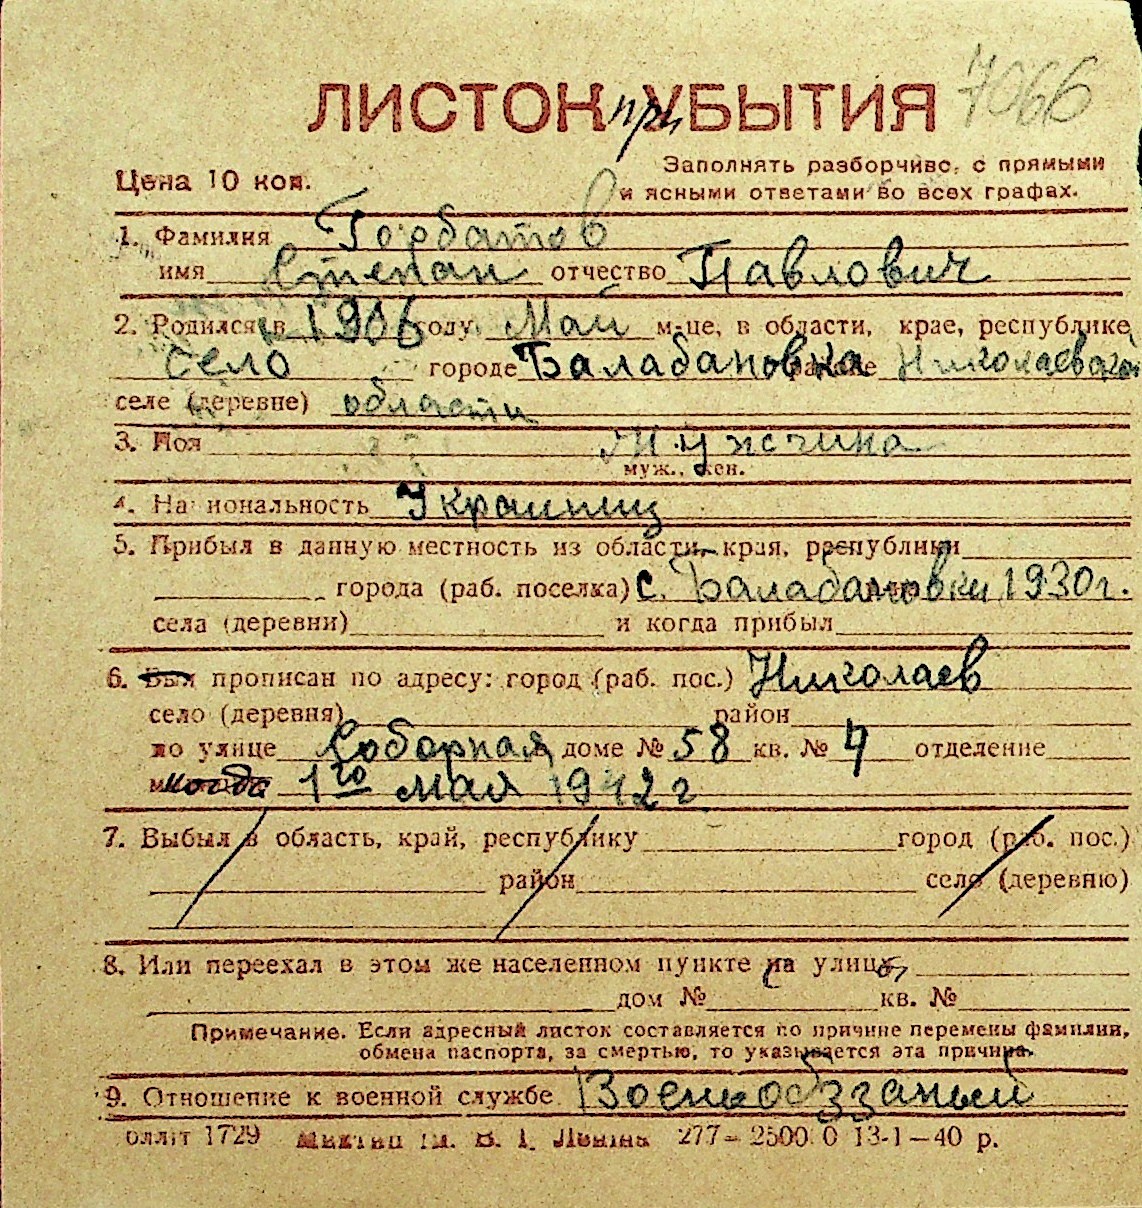 7066
ЛИСТОК при УБЫТИЯ
Заполнять разборчиво, с прямыми
Цена 10 коп.
и ясными ответами во всех графах.
1. Фамилия Горбатов
имя Степан отчество Павлович
2. Родился в 1906 году Май м-це, в области, крае, республике
село городе Балабановка районе Николаевской
селе (деревне) области
3. Пол Мужчина
муж., жен.
4. Национальность Украинец
5. Прибыл в данную местность из области, края, республики
города (раб. поселка) с. Балабановки 1930г.
села (деревни) и когда прибыл
6. Был прописан по адресу: город (раб. пос.) Николаев
село (деревня) район
по улице Соборная доме № 58 кв. № 4 отделение
когда 1го мая 1942 г
7. Выбыл в область, край, республику город (раб. пос.)
район село (деревню)
8. Или переехал в этом же населенном пункте на улицу
дом № кв. №
Примечание. Если адресный листок составляется по причине перемены фамилии,
обмена паспорта, за смертью, то указывается эта причина.
9. Отношение к военной службе Военнобззаный
1729 В. Ленина 277— 2500 0 13-1—40 р.